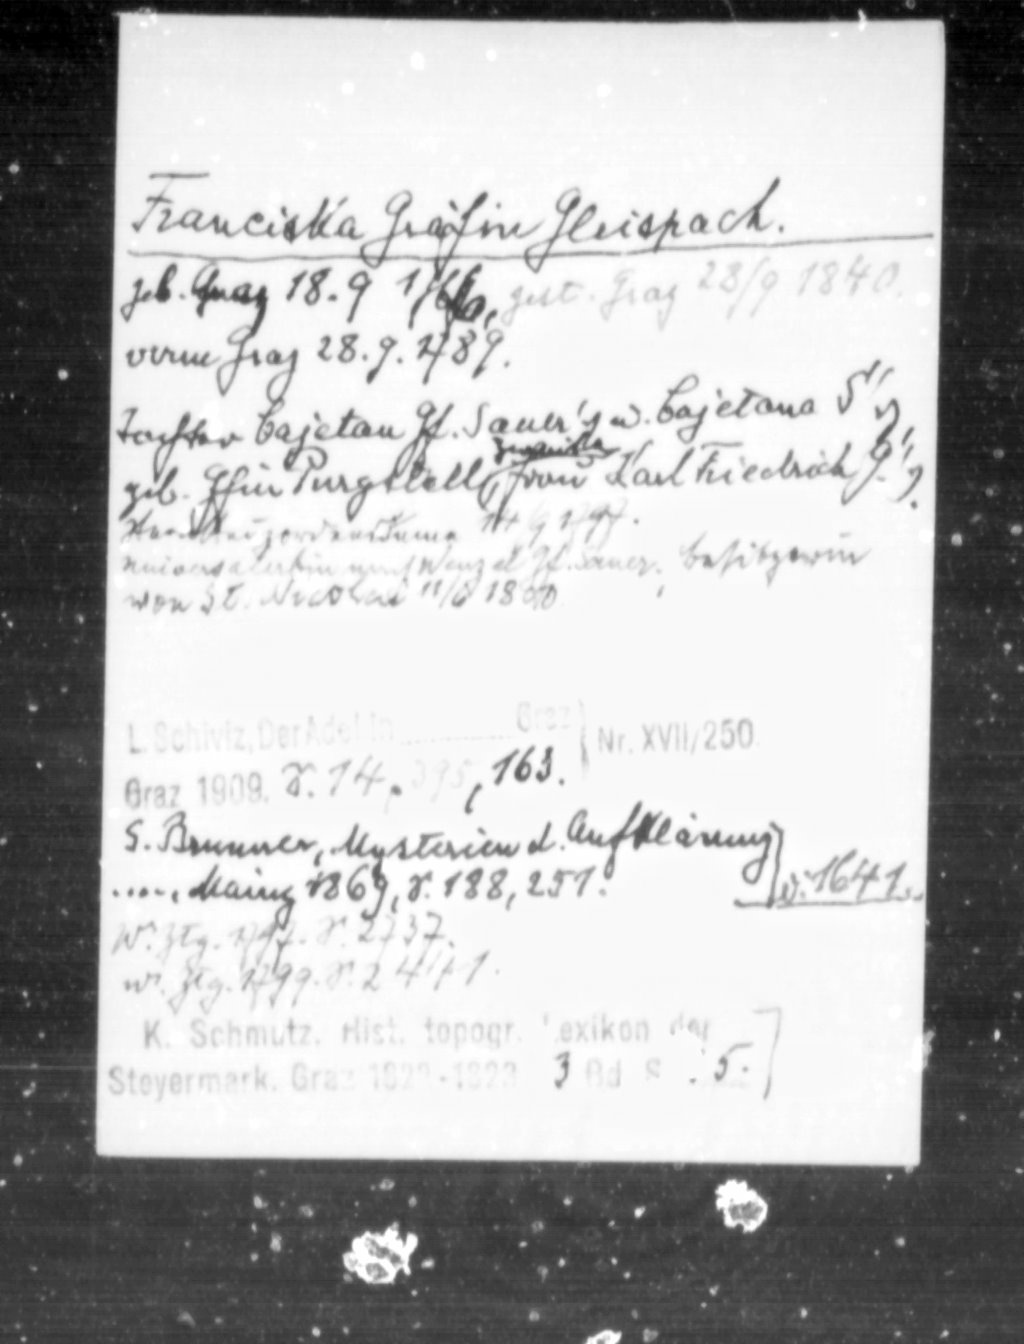 Franciska Gräfin Gleispach.
geb. Graz 18.9 17, gest. Graz 28/9 1840.
verm Graz 28.9.1789.
Tochter Cajetan Gf. Sauer's u. Cajetana S's
geb. Gfin Purgstall, zweite Frau Karl Friedrich G's.
Sternkreuzordensdame 14 9 1797.
Universalerbin nach Wenzel Gf. Sauer, besitzerin
von St. Nicolai 11/6 1800
L. Schiviz, Der Adel in Graz Nr. XVII/250
Graz 1909. S. 14, 395, 163.
S. Brunner, Mysterien d. Aufklärung
...., Mainz 1869, S. 188, 251. 1641.
W. Ztg. 1797. S. 2737.
W. Ztg. 1799. S. 2441.
K. Schmutz. Hist. topogr. Lexikon der
Steyermark. Graz 1822-1823 3 Bd S. 5.